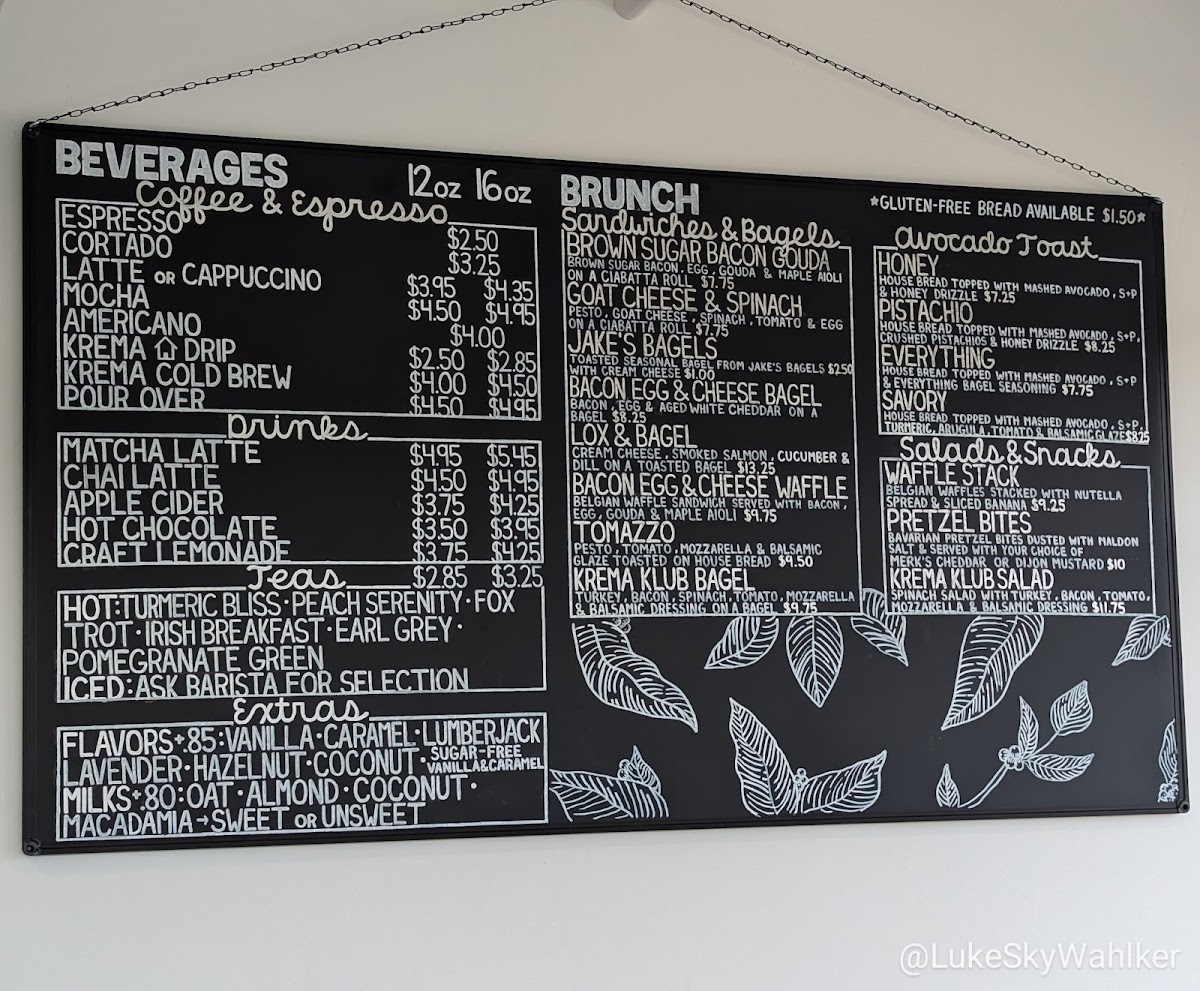 BEVERAGES 12oz 16oz
Coffee & Espresso
ESPRESSO $2.50
CORTADO $3.25
LATTE OR CAPPUCCINO $3.95 $4.35
MOCHA $4.50 $4.95
AMERICANO $4.00
KREMA DRIP $2.50 $2.85
KREMA COLD BREW $4.00 $4.50
POUR OVER $4.50 $4.95
Drinks
MATCHA LATTE $4.95 $5.45
CHAI LATTE $4.50 $4.95
APPLE CIDER $3.75 $4.25
HOT CHOCOLATE $3.50 $3.95
CRAFT LEMONADE $3.75 $4.25
Teas $2.85 $3.25
HOT:TURMERIC BLISS·PEACH SERENITY·FOX
TROT·IRISH BREAKFAST·EARL GREY·
POMEGRANATE GREEN
ICED:ASK BARISTA FOR SELECTION
Extras
FLAVORS+.85:VANILLA·CARAMEL·LUMBERJACK
LAVENDER·HAZELNUT·COCONUT·SUGAR-FREE
VANILLA&CARAMEL
MILKS+.80:OAT·ALMOND·COCONUT·
MACADAMIA→SWEET OR UNSWEET
BRUNCH
Sandwiches & Bagels
BROWN SUGAR BACON GOUDA
BROWN SUGAR BACON, EGG, GOUDA & MAPLE AIOLI
ON A CIABATTA ROLL $7.75
GOAT CHEESE & SPINACH
PESTO, GOAT CHEESE, SPINACH, TOMATO & EGG
ON A CIABATTA ROLL $7.75
JAKE'S BAGELS
TOASTED SEASONAL BAGEL FROM JAKE'S BAGELS $2.50
WITH CREAM CHEESE $1.00
BACON EGG & CHEESE BAGEL
BACON, EGG & AGED WHITE CHEDDAR ON A
BAGEL $8.25
LOX & BAGEL
CREAM CHEESE, SMOKED SALMON, CUCUMBER &
DILL ON A TOASTED BAGEL $13.25
BACON EGG & CHEESE WAFFLE
BELGIAN WAFFLE SANDWICH SERVED WITH BACON,
EGG, GOUDA & MAPLE AIOLI $9.75
TOMAZZO
PESTO, TOMATO, MOZZARELLA & BALSAMIC
GLAZE TOASTED ON HOUSE BREAD $9.50
KREMA KLUB BAGEL
TURKEY, BACON, SPINACH, TOMATO, MOZZARELLA
& BALSAMIC DRESSING ON A BAGEL $9.75
*GLUTEN-FREE BREAD AVAILABLE $1.50*
Avocado Toast
HONEY
HOUSE BREAD TOPPED WITH MASHED AVOCADO, S+P
& HONEY DRIZZLE $7.25
PISTACHIO
HOUSE BREAD TOPPED WITH MASHED AVOCADO, S+P,
CRUSHED PISTACHIOS & HONEY DRIZZLE $8.25
EVERYTHING
HOUSE BREAD TOPPED WITH MASHED AVOCADO, S+P
& EVERYTHING BAGEL SEASONING $7.75
SAVORY
HOUSE BREAD TOPPED WITH MASHED AVOCADO, S+P,
TURMERIC, ARUGULA, TOMATO & BALSAMIC GLAZE $8.25
Salads & Snacks
WAFFLE STACK
BELGIAN WAFFLES STACKED WITH NUTELLA
SPREAD & SLICED BANANA $9.25
PRETZEL BITES
BAVARIAN PRETZEL BITES DUSTED WITH MALDON
SALT & SERVED WITH YOUR CHOICE OF
MERK'S CHEDDAR OR DIJON MUSTARD $10
KREMA KLUB SALAD
SPINACH SALAD WITH TURKEY, BACON, TOMATO,
MOZZARELLA & BALSAMIC DRESSING $11.75
@LukeSkyWahlker